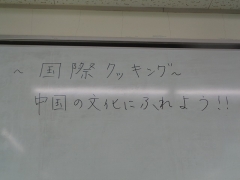 ～国際クッキング～
中国の文化にふれよう!!